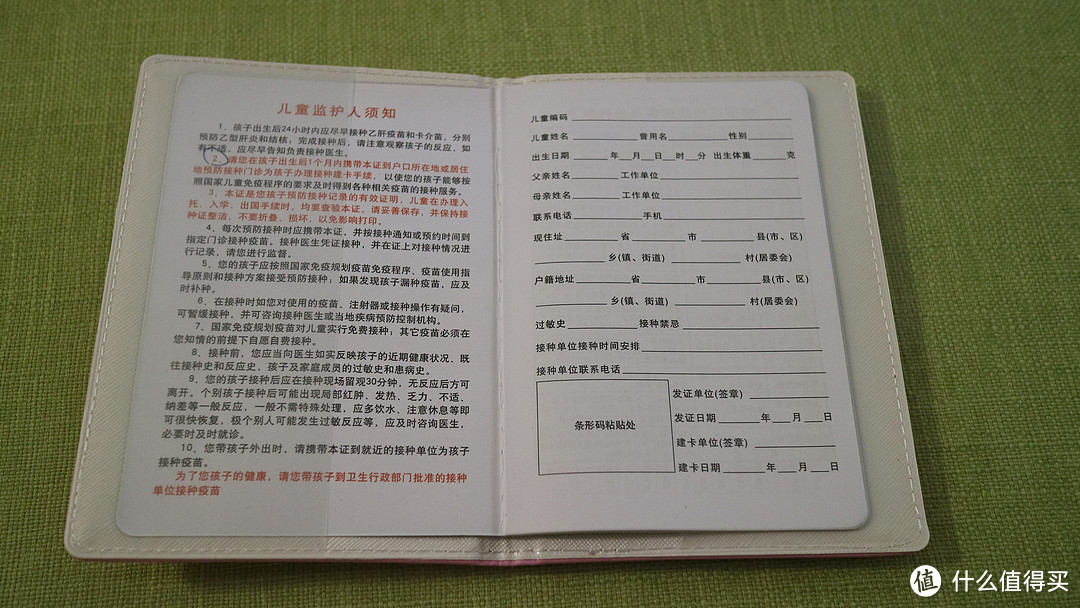 儿童监护人须知
1、孩子出生后24小时内应尽早接种乙肝疫苗和卡介苗，分别
预防乙型肝炎和结核；完成接种后，请注意观察孩子的反应，如
有不适，应尽早告知负责接种医生。
2、请您在孩子出生后1个月内携带本证到户口所在地或居住
地预防接种门诊为孩子办理接种建卡手续，以使您的孩子能够按
照国家儿童免疫程序的要求及时得到各种相关疫苗的接种服务。
3、本证是您孩子预防接种记录的有效证明，儿童在办理入
托、入学、出国手续时，均要查验本证，请妥善保存，并保持接
种证整洁，不要折叠、损坏，以免影响打印。
4、每次预防接种时应携带本证，并按接种通知或预约时间到
指定门诊接种疫苗。接种医生凭证接种，并在证上对接种情况进
行记录，请您进行监督。
5、您的孩子应按照国家免疫规划疫苗免疫程序、疫苗使用指
导原则和接种方案接受预防接种；如果发现孩子漏种疫苗，应及
时补种。
6、在接种时如您对使用的疫苗、注射器或接种操作有疑问，
可暂缓接种，并可咨询接种医生或当地疾病预防控制机构。
7、国家免疫规划疫苗对儿童实行免费接种；其它疫苗必须在
您知情的前提下自愿自费接种。
8、接种前，您应当向医生如实反映孩子的近期健康状况、既
往接种史和反应史，孩子及家庭成员的过敏史和患病史。
9、您的孩子接种后应在接种现场留观30分钟，无反应后方可
离开。个别孩子接种后可能出现局部红肿、发热、乏力、不适、
纳差等一般反应，一般不需特殊处理，应多饮水、注意休息等即
可很快恢复，极个别人可能发生过敏反应等，应及时咨询医生，
必要时及时就诊。
10、您带孩子外出时，请携带本证到就近的接种单位为孩子
接种疫苗。
为了您孩子的健康，请您带孩子到卫生行政部门批准的接种
单位接种疫苗
儿童编码
儿童姓名 曾用名 性别
出生日期 年 月 日 时 分 出生体重 克
父亲姓名 工作单位
母亲姓名 工作单位
联系电话 手机
现住址 省 市 县(市、区)
乡(镇、街道) 村(居委会)
户籍地址 省 市 县(市、区)
乡(镇、街道) 村(居委会)
过敏史 接种禁忌
接种单位接种时间安排
接种单位联系电话
条形码粘贴处
发证单位(签章)
发证日期 年 月 日
建卡单位(签章)
建卡日期 年 月 日
值 什么值得买